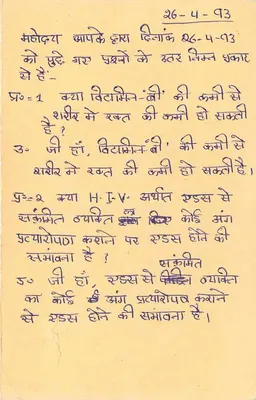 26-4-93
महोदय आपके द्वारा दिनांक 26-4-93
को पुछे गए प्रश्नों के उतर निम्न प्रकार
से हैं:-
प्र०=1 क्या विटामिन-'बी' की कमी से
शरीर मे रक्त की कमी हो सकती
है ?
उ- जी हाँ, विटामिन-'बी' की कमी से
शरीर मे रक्त की कमी हो सकती है।
प्र०=2 क्या H.I.V. अर्थात एडस से
संक्रमित व्यक्ति का कोई अंग
प्रत्यारोपण कराने पर एडस होने की
संभावना है ?
संक्रमित
उ- जी हाँ, एडस से व्यक्ति
का कोई अंग प्रत्यारोपण कराने
से एडस होने की संभावना है।